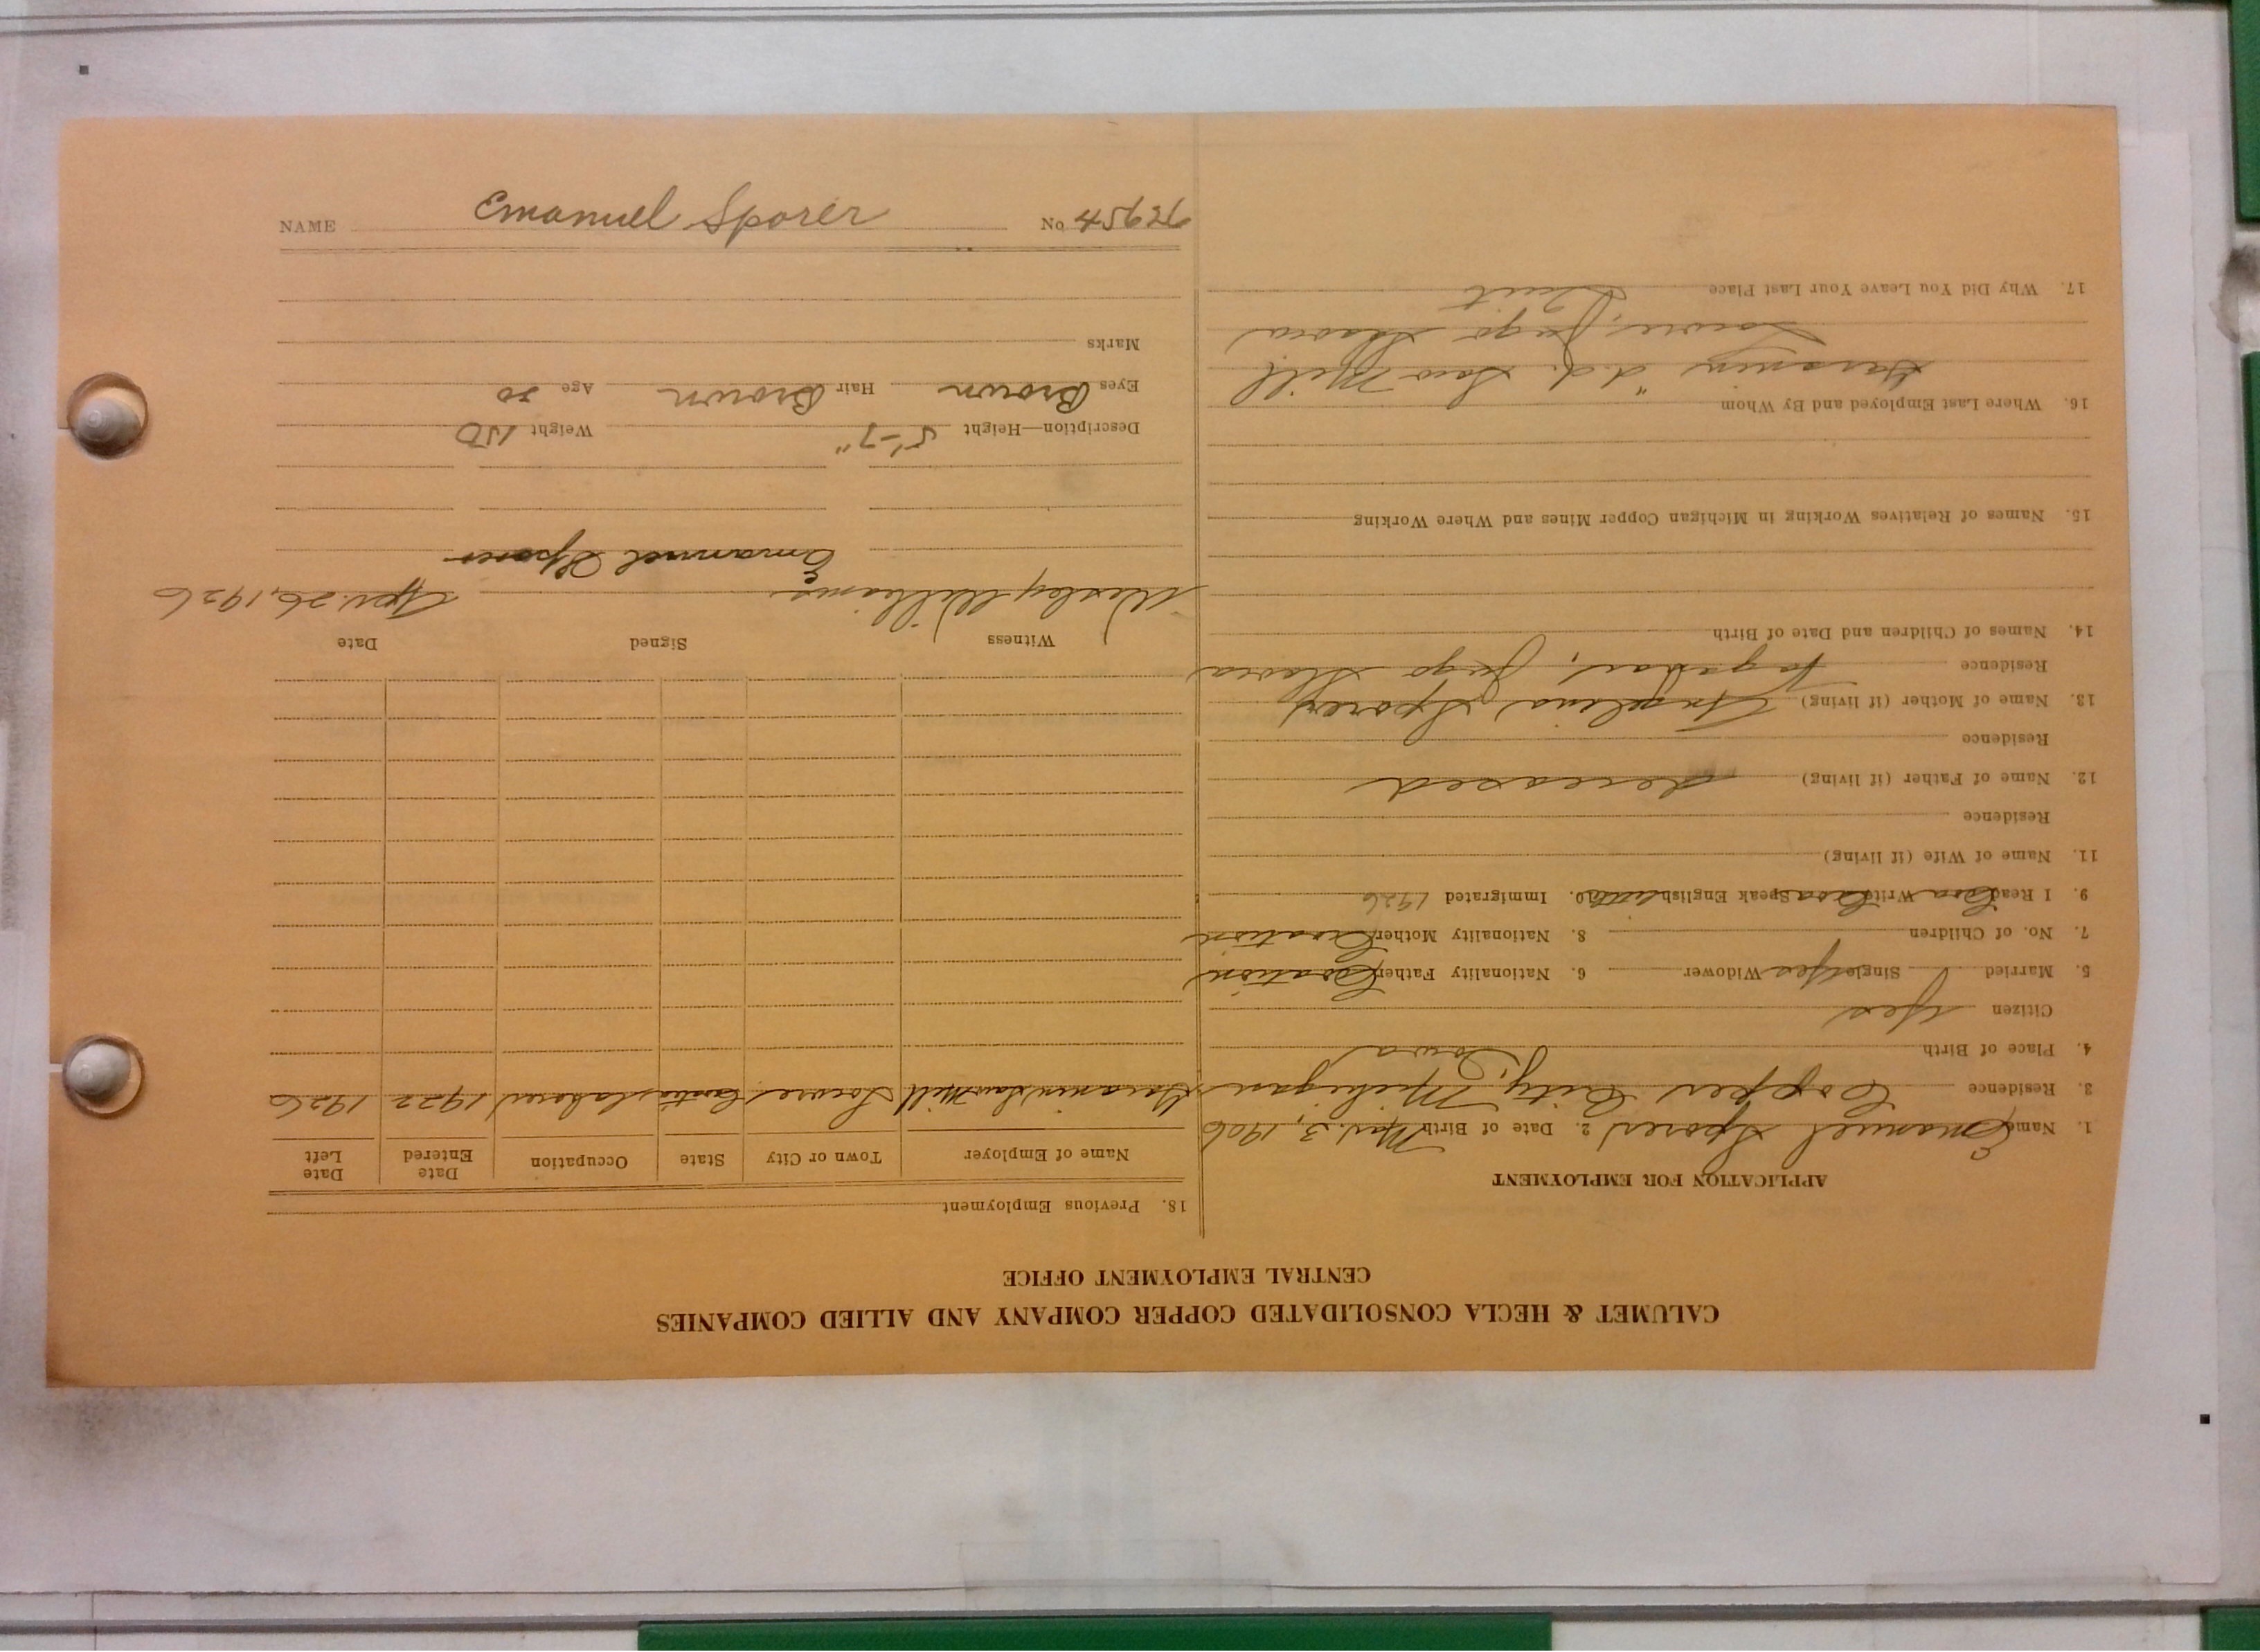 CALUMET & HECLA CONSOLIDATED COPPER COMPANY AND ALLIED COMPANIES
CENTRAL EMPLOYMENT OFFICE
APPLICATION FOR EMPLOYMENT
1. Name Emanuel Sporer 2. Date of Birth Mar. 3, 1906
3. Residence Copper City, Michigan
4. Place of Birth Iowa
Citizen Yes
5. Married Single Yes Widower 6. Nationality Father Croation
7. No. of Children 8. Nationality Mother Croation
9. I Read Croa Write Croa Speak English little 10. Immigrated 1926
11. Name of Wife (if living)
Residence
12. Name of Father (if living) deceased
Residence
13. Name of Mother (if living) Angelina Sporer
Residence Jugo Slavia
14. Names of Children and Date of Birth
15. Names of Relatives Working in Michigan Copper Mines and Where Working
16. Where Last Employed and By Whom
"d.d. Saw Mill
Jugo Slavia
17. Why Did You Leave Your Last Place Quit
18. Previous Employment
Name of Employer Town or City State Occupation Date Entered Date Left
Saw Mill Croatia Laborer 1922 1926
Witness Signed Date
Wesley Williams Emanuel Sporer Apr. 26, 1926
Description—Height 5'-7" Weight 150
Eyes Brown Hair Brown Age 20
Marks
NAME Emanuel Sporer No